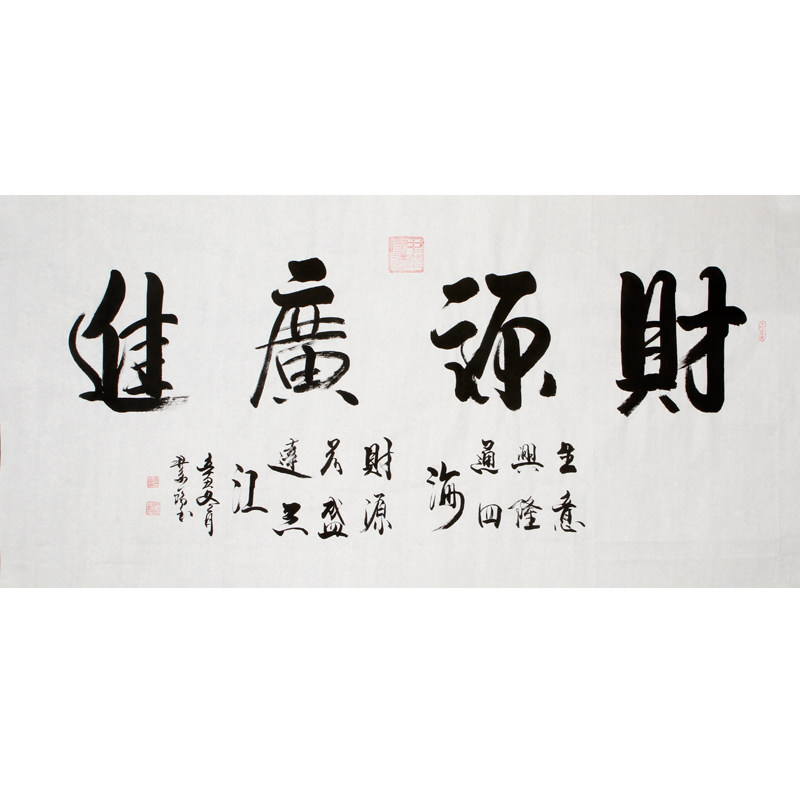 財源廣進
生意
興隆
通四
海
財源
茂盛
達三
江